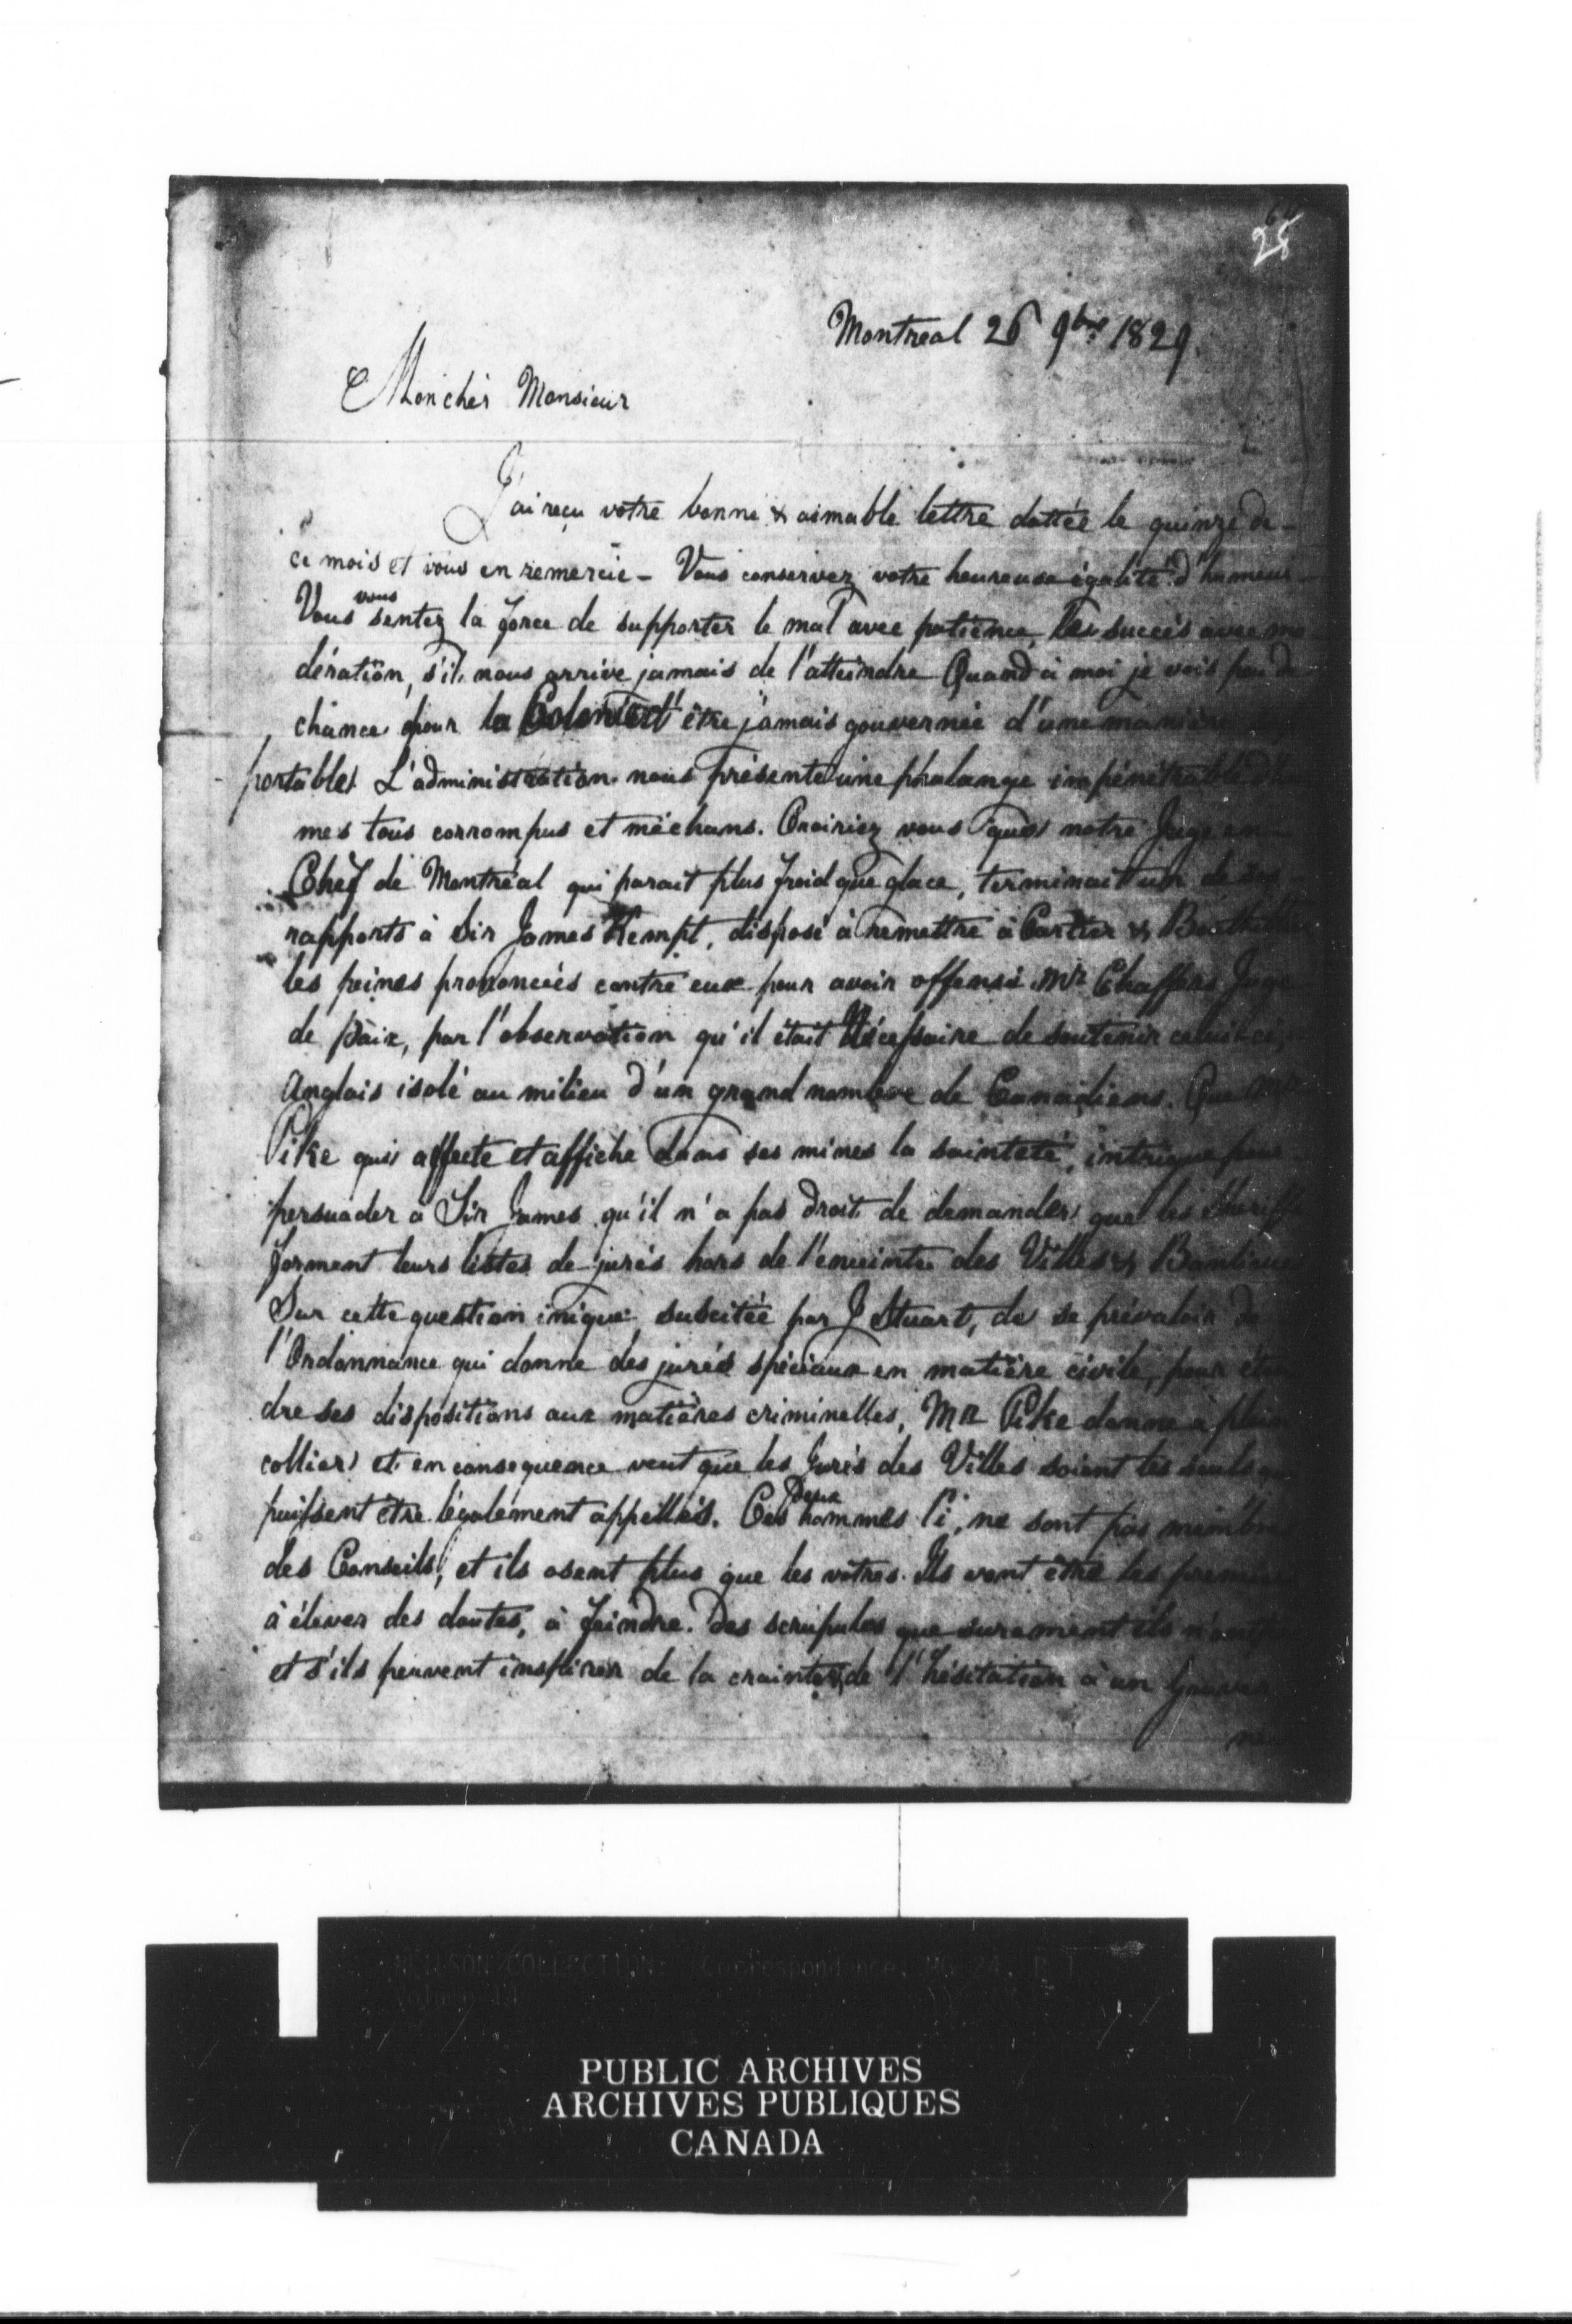 28
Montreal 26 9bre 1829.
Mon cher Monsieur
J'ai reçu votre bonne & aimable lettre dattée le quinze de
ce mois et vous en remercie - Vous conservez votre heureuse égalité d'humeur
Vous vous sentez la force de supporter le mal avec patience, les succès avec mo
dération, s'il nous arrive jamais de l'atteindre Quand à moi je vois peu de
chance pour la d'être jamais gouvernée d'une manière
portable. L'administration nous présente une phalange impénétrable d'
mes tous corrompus et méchans. Croiriez vous que notre Juge en
Chef de Montréal qui parait plus froid que glace, terminait un de ses
rapports à Sir James Kempt, disposé à remettre à Cartier & Berthelot
les peines prononcées contre eux pour avoir offensé Mr Chaffers Juge
de paix, par l'observation qu'il était Nécessaire de soutenir celui-ci,
Anglais isolé au milieu d'un grand nombre de Canadiens. Que Mr
Pike qui affecte et affiche dans ses mines la sainteté, intrigue pour
persuader à Sir James qu'il n'a pas droit de demander que les Sheriffs
forment leurs listes de jurés hors de l'enceinte des Villes & Banlieues
Sur cette question inique suscitée par J Stuart, de se prévaloir de
l'Ordonnance qui donne des jurés spéciaux en matière civile, pour éten
dre ses dispositions aux matières criminelles, Mr Pike donne à plein
collier et en consequence veut que les Jurés des Villes soient les seuls qui
puissent être légalement appellés. Ces deux hommes là, ne sont pas membres
des Conseils, et ils osent plus que les votres. Ils vont être les premiers
à élever des doutes, à feindre des scrupules que surement ils n'ont pas
et s'ils peuvent inspirer de la crainte, de l'hésitation à un Gouver
neur
PUBLIC ARCHIVES
ARCHIVES PUBLIQUES
CANADA